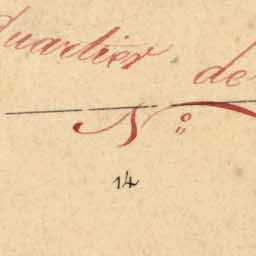 Quartier de
N:
14